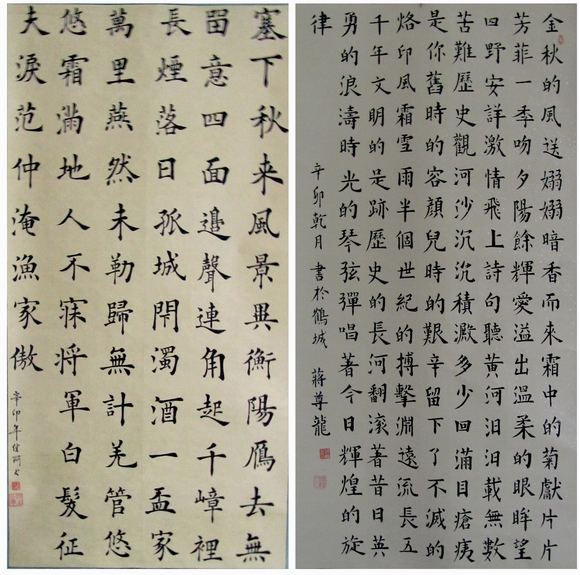 塞下秋来風景異衡陽鴈去無
留意四面邉聲連角起千嶂裡
長煙落日孤城閇濁酒一盃家
萬里燕然未勒歸無計羌管悠
悠霜滿地人不寐将軍白髮征
夫淚范仲淹漁家傲
辛卯年
金秋的風送嫋嫋暗香而來霜中的菊獻片片
芳菲一季吻夕陽餘輝愛溢出溫柔的眼眸望
田野安詳激情飛上詩句聽黃河汩汩載無數
苦難歷史觀河沙沉沉積澱多少回滿目瘡痍
是你舊時的容顏兒時的艱辛留下了不滅的
烙印風霜雪雨半個世紀的搏擊淵遠流長五
千年文明的是跡歷史的長河翻滚著昔日英
勇的浪濤時光的琴弦彈唱著今日輝煌的旋
律
辛卯乾月書於鶴城 蔣尊龍